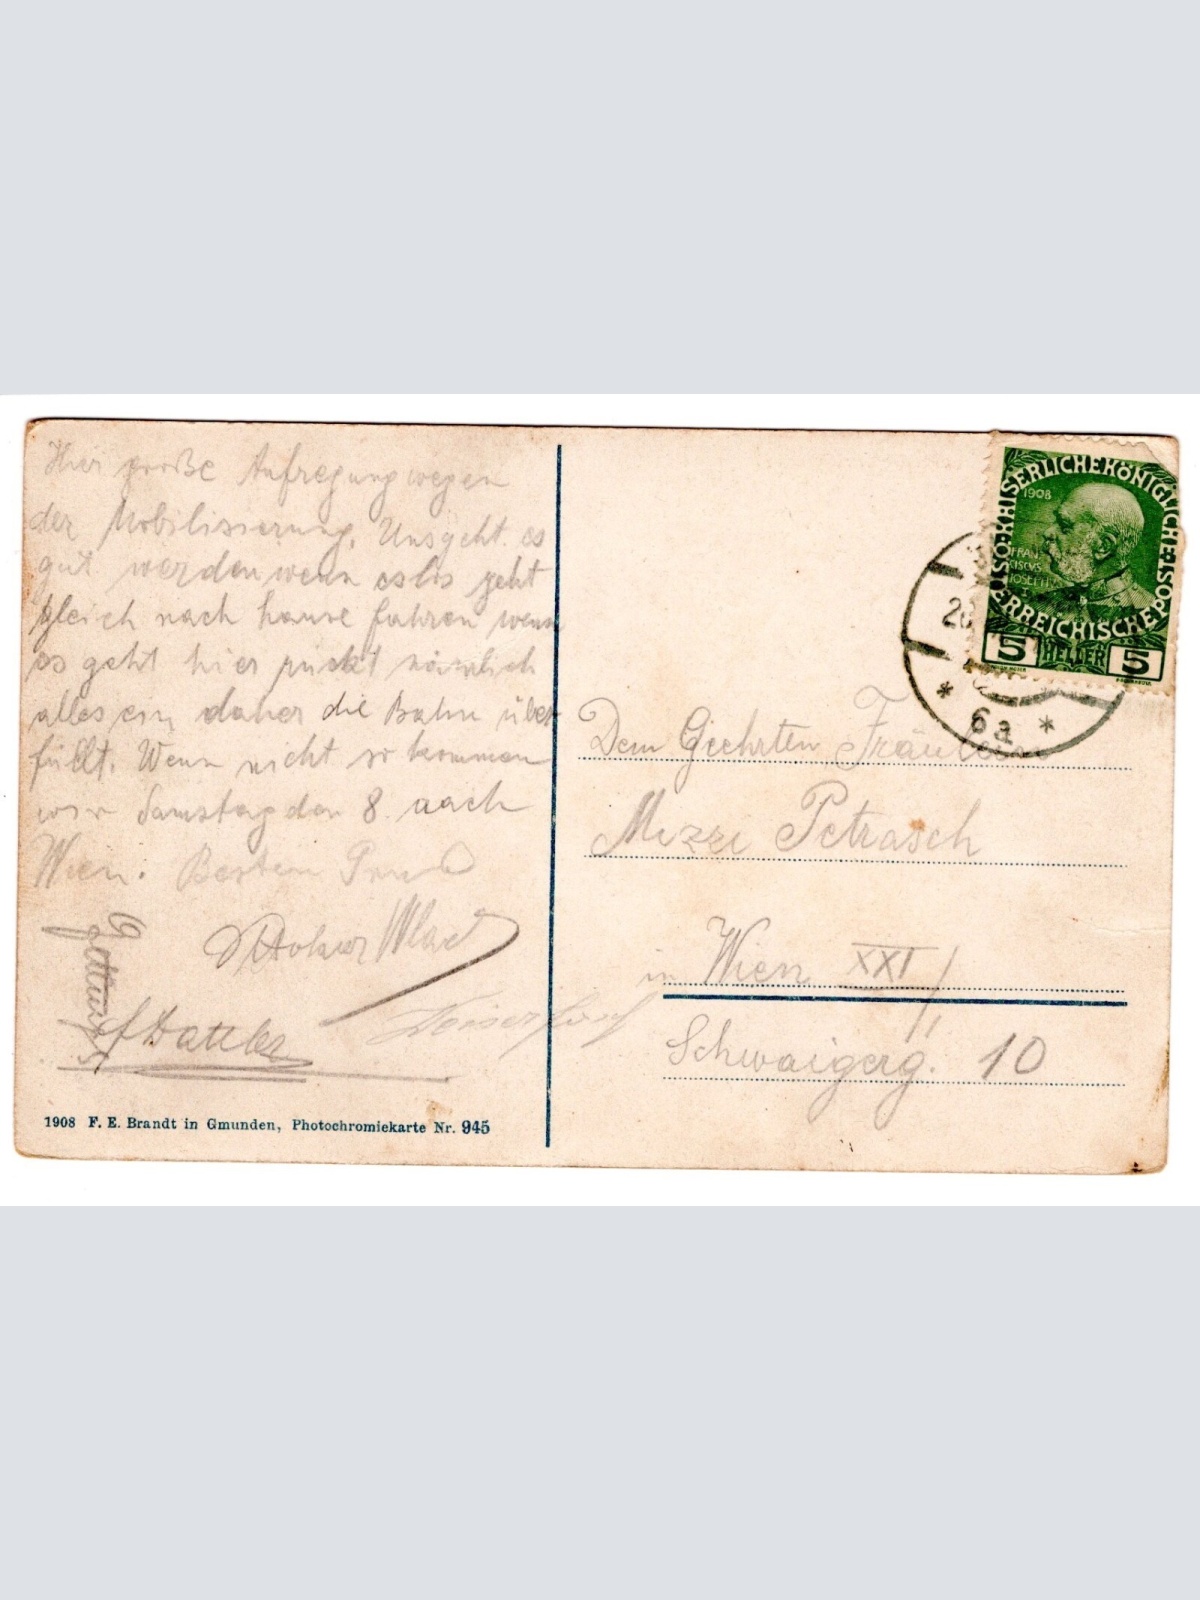 Hier große Aufregung wegen
der Mobilisierung. Uns geht es
gut werden wenn es los geht
gleich nach hause fahren wenn
es geht hier rückt nämlich
alles ein daher die Bahn über
füllt. Wenn nicht so kommen
wir Samstag den 8. nach
Wien. Besten Gruß
1908 F. E. Brandt in Gmunden, Photochromiekarte Nr. 945
KAISERLICHEKÖNIGLICHE
ÖSTERREICHISCHE POST
1908
FRAN
CISCVS
JOSEPH
I
5 HELLER 5
6a
Dem Geehrten Fräulein
Mizzi Petrasch
in Wien XXI/1
Schwaigerg. 10